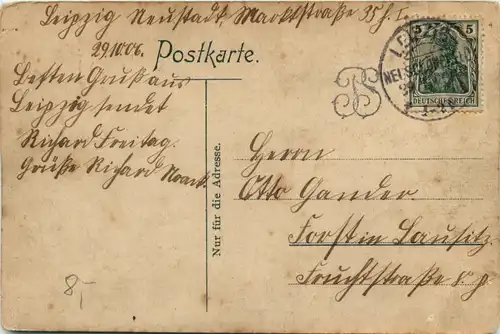 Leipzig Neustadt, Marktstraße 35 H. I.
29.10.06.
Postkarte.
Besten Gruß aus
Leipzig sendet
Richard Freitag.
Grüße Richard Noack.
Nur für die Adresse.
5
DEUTSCHES REICH
Herrn
Otto Gander.
Forst in Lausitz.
Fruchtstraße
8,-